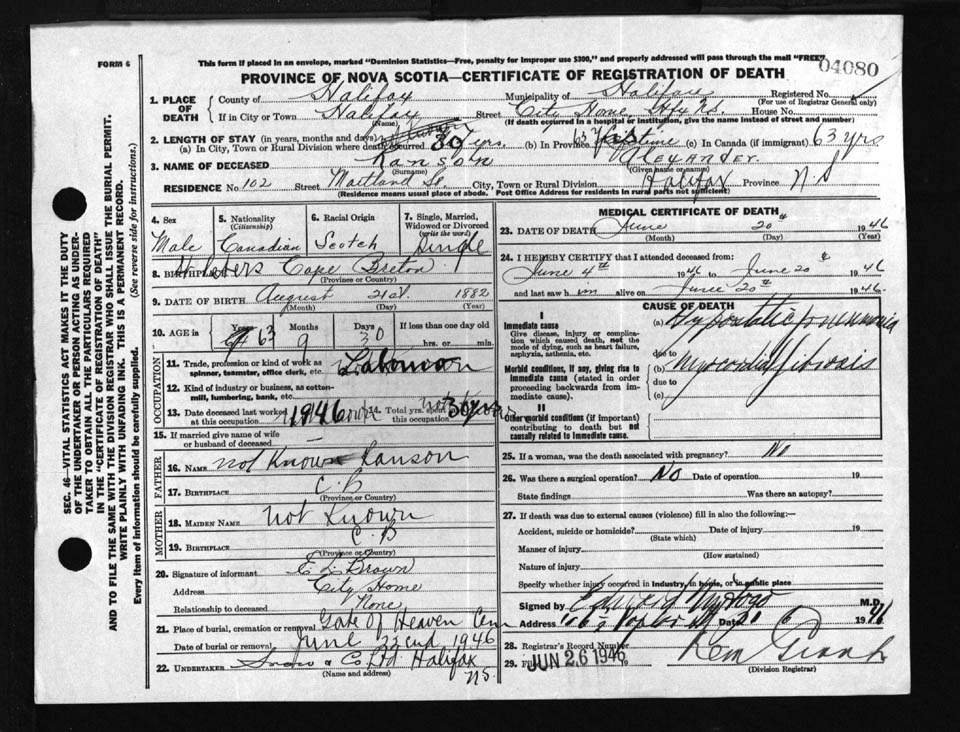 FORM 6
This form if placed in an envelope, marked "Dominion Statistics—Free, penalty for improper use $300," and properly addressed will pass through the mail "FREE"
04080
PROVINCE OF NOVA SCOTIA—CERTIFICATE OF REGISTRATION OF DEATH
1. PLACE OF DEATH
County of Halifax Municipality of Halifax Registered No.
(For use of Registrar General only)
If in City or Town Halifax Street City Home House No.
(Name) (If death occurred in a hospital or institution, give the name instead of street and number)
2. LENGTH OF STAY (in years, months and days)
(a) In City, Town or Rural Division where death occurred 30 yrs. (b) In Province (c) In Canada (if immigrant) 63 yrs
3. NAME OF DECEASED Ranson Alexander
(Surname) (Given name or names)
RESIDENCE No 102 Street Maitland St. City, Town or Rural Division Halifax Province N.S
(Residence means usual place of abode. Post Office Address for residents in rural parts not sufficient)
4. Sex Male
5. Nationality (Citizenship) Canadian
6. Racial Origin Scotch
7. Single, Married, Widowed or Divorced (write the word) Single
8. BIRTHPLACE Cape Breton
(Province or Country)
9. DATE OF BIRTH August 21st 1882
(Month) (Day) (Year)
10. AGE in Years 63 Months 9 Days 30 If less than one day old
hrs. or min.
OCCUPATION
11. Trade, profession or kind of work as spinner, teamster, office clerk, etc. Laborer
12. Kind of industry or business, as cotton-mill, lumbering, bank, etc.
13. Date deceased last worked at this occupation 1946 14. Total yrs. spent in this occupation
15. If married give name of wife or husband of deceased —
FATHER
16. NAME not Known Ranson
17. BIRTHPLACE C.B
(Province or Country)
MOTHER
18. MAIDEN NAME Not Known
19. BIRTHPLACE C.B
(Province or Country)
20. Signature of informant E L Brown
Address City Home
Relationship to deceased None
21. Place of burial, cremation or removal Gate Of Heaven Cem
Date of burial or removal June 22nd 1946
22. UNDERTAKER Snow & Co Ltd Halifax N.S.
(Name and address)
MEDICAL CERTIFICATE OF DEATH
23. DATE OF DEATH June 20 1946
(Month) (Day) (Year)
24. I HEREBY CERTIFY that I attended deceased from:
June 4th 1946 to June 20th 1946
and last saw him alive on June 20th 1946.
CAUSE OF DEATH
I
Immediate cause
Give disease, injury or complication which caused death, not the mode of dying, such as heart failure, asphyxia, asthenia, etc.
(a) Hypostatic pneumonia
due to
Morbid conditions, if any, giving rise to immediate cause (stated in order proceeding backwards from immediate cause)
(b) Myocardial fibrosis
due to
(c)
II
Other morbid conditions (if important) contributing to death but not causally related to immediate cause.
25. If a woman, was the death associated with pregnancy? No
26. Was there a surgical operation? No Date of operation 19
State findings Was there an autopsy?
27. If death was due to external causes (violence) fill in also the following:—
Accident, suicide or homicide? Date of injury 19
(State which)
Manner of injury
(How sustained)
Nature of injury
Specify whether injury occurred in industry, in home, or in public place
Signed by M.D.
Address Date
28. Registrar's Record Number
29. Filed JUN 26 1946
(Division Registrar)
SEC. 46—VITAL STATISTICS ACT MAKES IT THE DUTY OF THE UNDERTAKER OR PERSON ACTING AS UNDERTAKER TO OBTAIN ALL THE PARTICULARS REQUIRED IN THE "CERTIFICATE OF REGISTRATION OF DEATH" AND TO FILE THE SAME WITH THE DIVISION REGISTRAR WHO SHALL ISSUE THE BURIAL PERMIT.
WRITE PLAINLY WITH UNFADING INK. THIS IS A PERMANENT RECORD.
Every item of information should be carefully supplied. (See reverse side for instructions.)